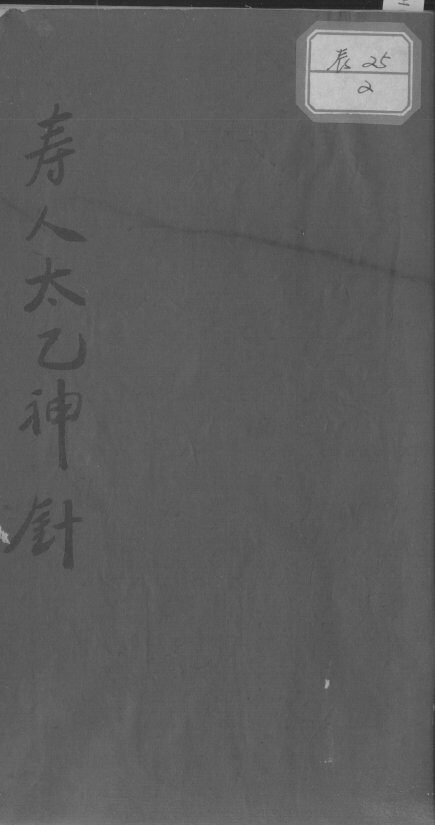 辰 25
2
寿人太乙神針